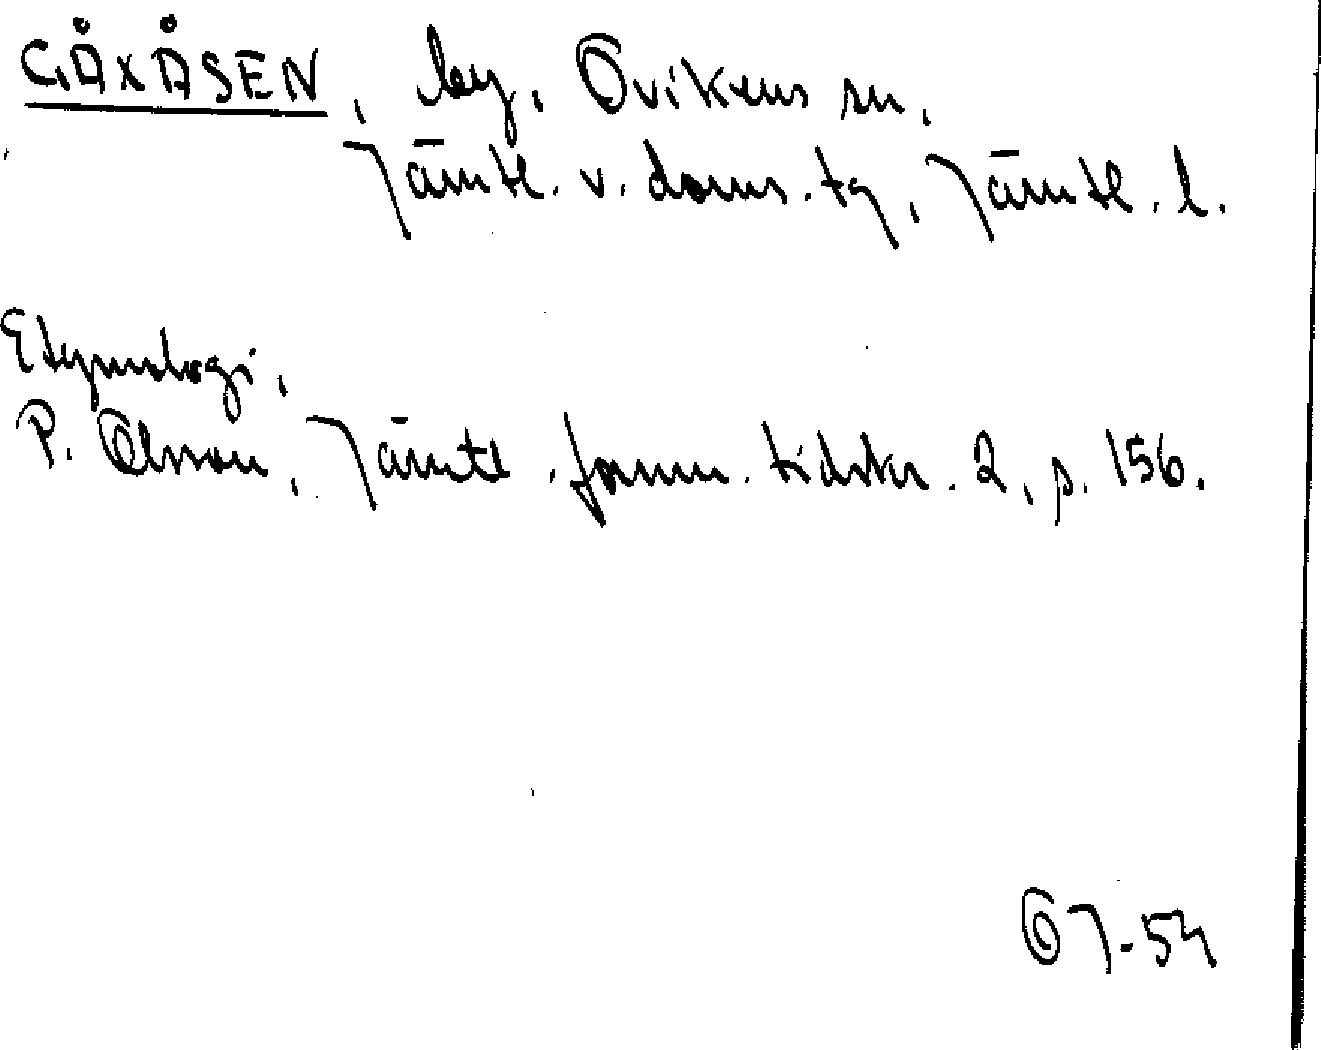 GÅXÅSEN, by, Ovikens sn,
Jämtl. v. doms. tg, Jämtl. l.
Etymologi,
P. Olsson, Jämtl. fornm. tidskr. 2, s. 156.